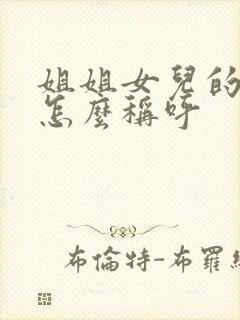 姐姐女兒的
怎麼稱呼
布倫特-布羅